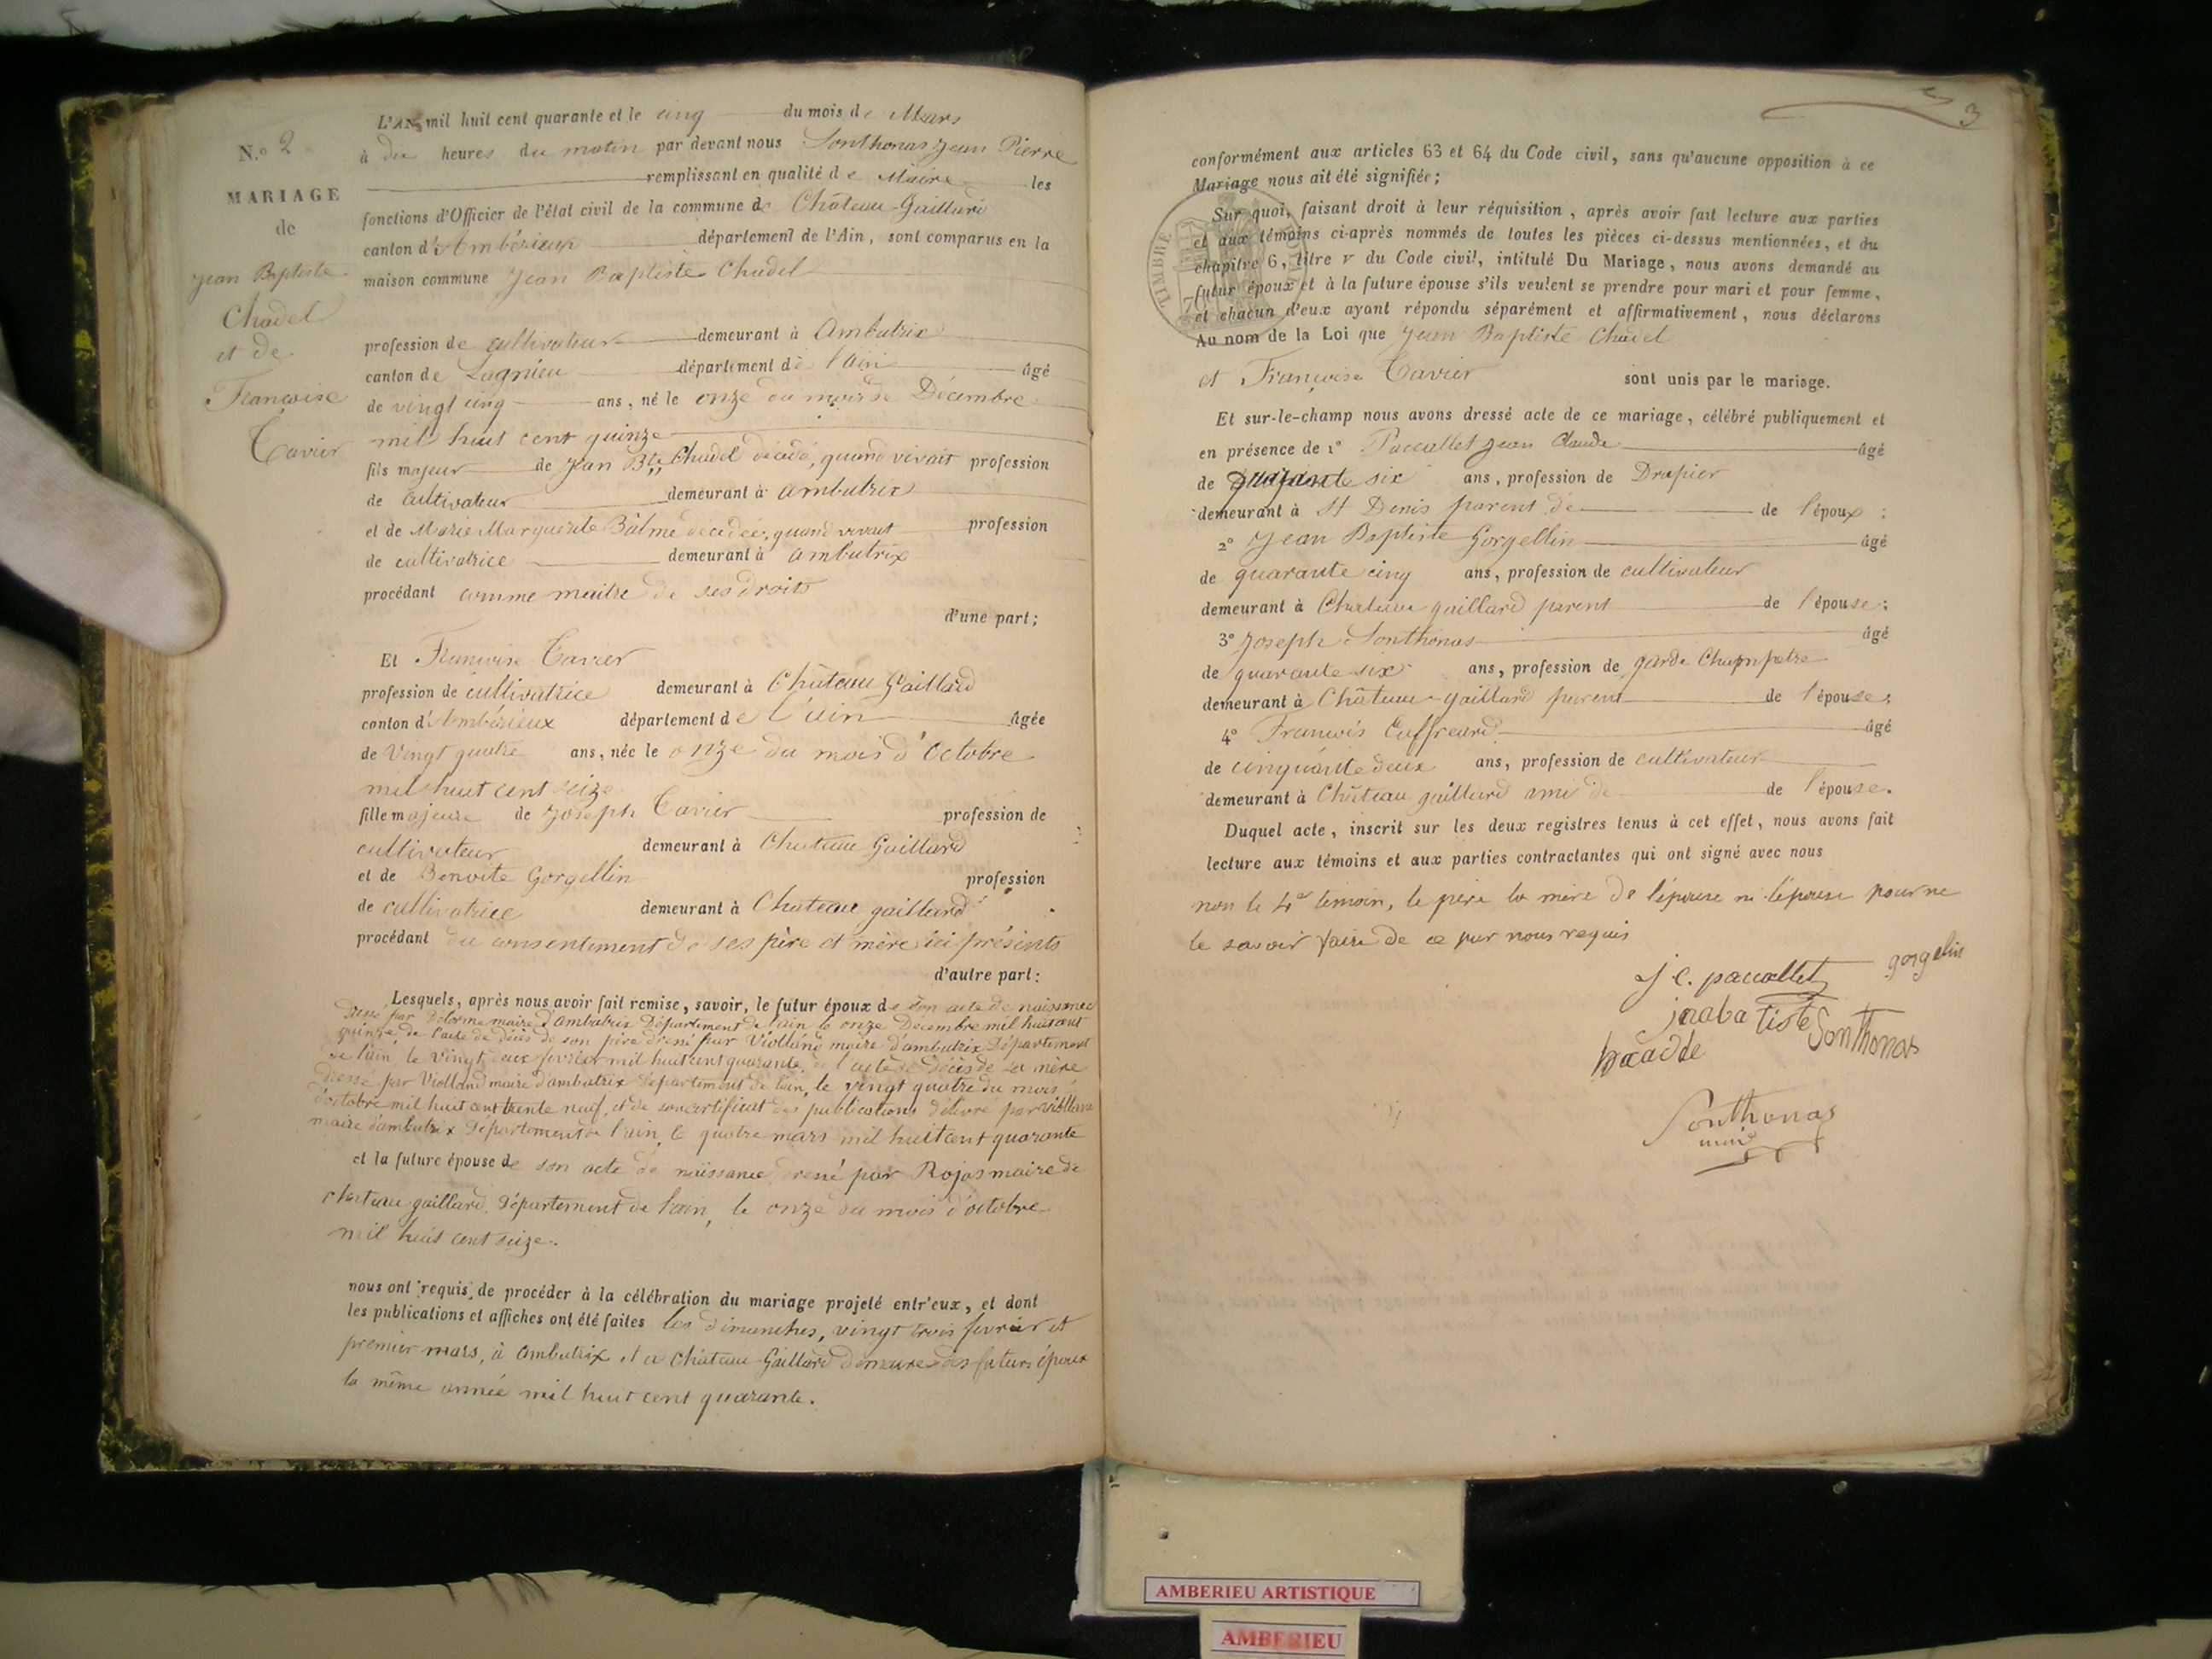 N.o 2
MARIAGE
de
Jean Baptiste
Chadel
et de
Françoise
Tavier
L'AN mil huit cent quarante et le cinq du mois de Mars
à dix heures du matin par devant nous Sonthonas Jean Pierre
remplissant en qualité de Maire les
fonctions d'Officier de l'état civil de la commune de Château-Gaillard
canton d'Ambérieux département de l'Ain, sont comparus en la
maison commune Jean Baptiste Chadel
profession de cultivateur demeurant à Ambutrix
canton de Lagnieu département de l'ain âgé
de vingt cinq ans, né le onze du mois de Décembre
mil huit cent quinze
fils majeur de Jean Bte Chadel décédé, quand vivait profession
de cultivateur demeurant à ambutrix
et de Marie Marguerite Balme décédée, quand vivait profession
de cultivatrice demeurant à ambutrix
procédant comme maitre de ses droits
d'une part;
Et Françoise Tavier
profession de cultivatrice demeurant à Château Gaillard
canton d'Ambérieux département de l'ain âgée
de Vingt quatre ans, née le onze du mois d'Octobre
mil huit cent seize
fille majeure de Joseph Tavier profession de
cultivateur demeurant à Chateau Gaillard
et de Benoite Gorgellin profession
de cultivatrice demeurant à Chateau gaillard
procédant du consentement de ses père et mère ici présents
d'autre part:
Lesquels, après nous avoir fait remise, savoir, le futur époux de son acte de naissance
dressé par Delorme maire d'ambutrix Département de l'ain le onze Decembre mil huit cent
quinze, de l'acte de décès de son père dressé par Violland maire d'ambutrix Département
de l'ain, le Vingt deux fevrier mil huit cent quarante, de l'acte de décès de sa mère
dressé par Violland maire d'ambutrix Departement de l'ain, le vingt quatre du mois
d'octobre mil huit cent trente neuf, et de son certificat des publications délivré par violland
maire d'ambutrix Département de l'ain, le quatre mars mil huit cent quarante
et la future épouse de son acte de naissance dressé par Rojas maire de
chateau gaillard. Département de l'ain, le onze du mois d'octobre
mil huit cent seize.
nous ont requis de procéder à la célébration du mariage projeté entr'eux, et dont
les publications et affiches ont été faites les dimanches, vingt trois fevrier et
premier mars, à Ambutrix et a Château-Gaillard demeures des futurs époux
la même année mil huit cent quarante.
3
conformément aux articles 63 et 64 du Code civil, sans qu'aucune opposition à ce
Mariage nous ait été signifiée;
TIMBRE ROYAL
Sur quoi, faisant droit à leur réquisition, après avoir fait lecture aux parties
et aux témoins ci-après nommés de toutes les pièces ci-dessus mentionnées, et du
chapitre 6, titre v du Code civil, intitulé Du Mariage, nous avons demandé au
futur époux et à la future épouse s'ils veulent se prendre pour mari et pour femme,
et chacun d'eux ayant répondu séparément et affirmativement, nous déclarons
Au nom de la Loi que Jean Baptiste Chadel
et Françoise Tavier sont unis par le mariage.
Et sur-le-champ nous avons dressé acte de ce mariage, célébré publiquement et
en présence de 1° Paccallet Jean Claude âgé
de quarante six ans, profession de Drapier
demeurant à St Denis parent de de l'époux;
2° Jean Baptiste Gorgellin âgé
de quarante cinq ans, profession de cultivateur
demeurant à Chateau gaillard parent de l'épouse;
3° Joseph Sonthonas âgé
de quarante six ans, profession de garde Champetre
demeurant à Château-gaillard parent de l'épouse;
4° Francois Cuffreard âgé
de cinquante deux ans, profession de cultivateur
demeurant à Château gaillard ami de de l'épouse.
Duquel acte, inscrit sur les deux registres tenus à cet effet, nous avons fait
lecture aux témoins et aux parties contractantes qui ont signé avec nous
non le 4e témoin, le père la mère de l'épouse ni l'épouse pour ne
le savoir faire de ce par nous requis
j c. paccallet gorgelin
jnaba tiste Sonthonas
Sonthonas
maire
AMBERIEU ARTISTIQUE
AMBERIEU